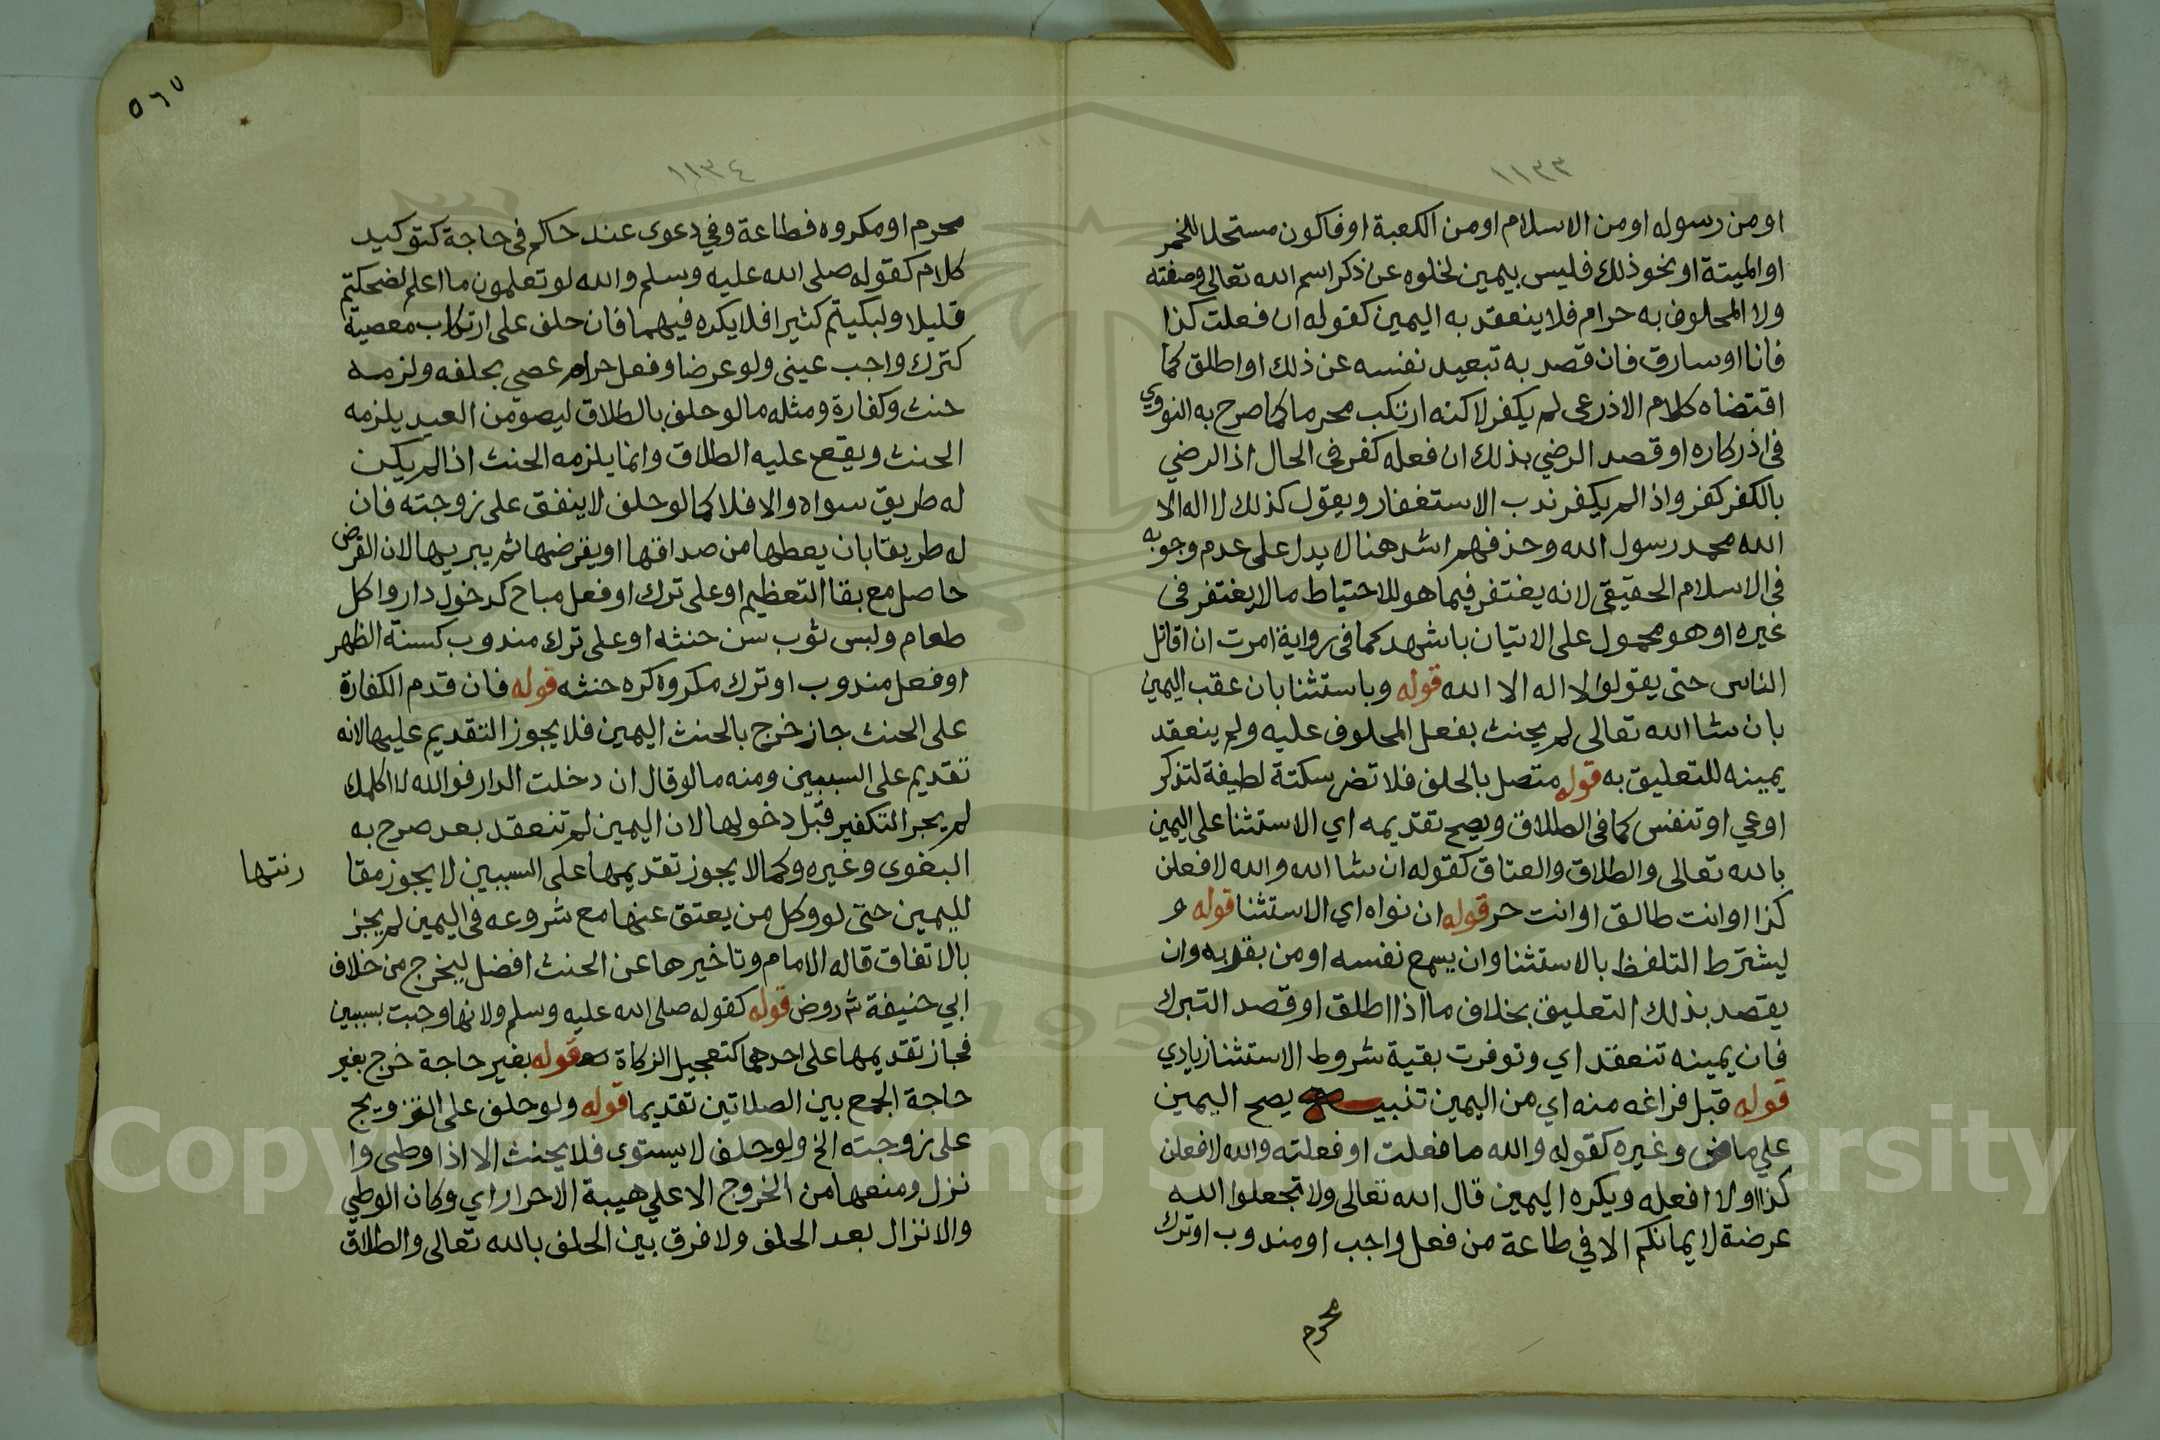 ١١٣٣
او من رسوله او من الاسلام او من الكعبة او فاكون مستحلا للخمر
او الميتة او نحو ذلك فليس بيمين لخلوه عن ذكر اسم الله تعالى وصفته
ولا المحلوف به حرام فلا ينعقد به اليمين كقوله ان فعلت كذا
فانا او سارق فان قصد به تبعيد نفسه عن ذلك او اطلق كما
اقتضاه كلام الاذرعى لم يكفر لاكنه ارتكب محرما كما صرح به النووي
فى اذركاره او قصد الرضي بذلك ان فعله كفر فى الحال اذ الرضي
بالكفر كفر واذا لم يكفر ندب الاستغفار ويقول كذلك لا اله الا
الله محمد رسول الله وحذفهم اشد هنا لا يدل على عدم وجوبه
فى الاسلام الحقيقى لانه يغتفر فيما هو للاحتياط ما لا يغتفر فى
غيره او هو محمول على الاتيان باشهد كما فى رواية امرت ان اقاتل
الناس حتى يقولوا لا اله الا الله قوله وباستثنا بان عقب اليمين
بان شا الله تعالى لم يحنث بفعل المحلوف عليه ولم ينعقد
يمينه للتعليق به قوله متصل بالحلف فلا تضر سكتة لطيفة لتذكر
او عي او تنفس كما فى الطلاق ويصح تقديمه اي الاستثنا على اليمين
بالله تعالى والطلاق والعتاق كقوله ان شا الله والله لافعلن
كذا او انت طالق او انت حر قوله ان نواه اي الاستثنا قوله و
ليشترط التلفظ بالاستثنا وان يسمع نفسه او من بقربه وان
يقصد بذلك التعليق بخلاف ما اذا اطلق او قصد التبرك
فان يمينه تنعقد اي وتوفرت بقية شروط الاستثنا زيادي
قوله قبل فراغه منه اي من اليمين تنبيه يصح اليمين
على ماض وغيره كقوله والله ما فعلت او فعلته والله لافعلن
كذا او لا افعله ويكره اليمين قال الله تعالى ولا تجعلوا الله
عرضة لايمانكم الا في طاعة من فعل واجب او مندوب او ترك
محرم
٥٦٧
١١٣٤
محرم او مكروه فطاعة وفي دعوى عند حاكم فى حاجة كتوكيد
كلام كقوله صلى الله عليه وسلم والله لو تعلمون ما اعلم لضحكتم
قليلا ولبكيتم كثيرا فلا يكره فيهما فان حلف على ارتكاب معصية
كترك واجب عينى ولو عرضا او فعل حرام عصي بحلفه ولزمه
حنث وكفارة ومثله ما لو حلف بالطلاق ليصومن العيد يلزمه
الحنث ويقع عليه الطلاق وانما يلزمه الحنث اذا لم يكن
له طريق سواه والا فلا كما لو حلف لا ينفق على زوجته فان
له طريقا بان يعطها من صداقها او يقرضها ثم يبريها لان القرض
حاصل مع بقا التعظيم او على ترك او فعل مباح كدخول دار واكل
طعام ولبس ثوب سن حنثه او على ترك مندوب كسنة الظهر
او فعل مندوب او ترك مكروه كره حنثه قوله فان قدم الكفارة
على الحنث جاز خرج بالحنث اليمين فلا يجوز التقديم عليها لانه
تقديم على السببين ومنه ما لو قال ان دخلت الدار فوالله لا اكلمك
لم يجر التكفير قبل دخولها لان اليمين لم تنعقد بعد صرح به
البغوى وغيره وكما لا يجوز تقديمها على السببين لا يجوز مقا
رنتها
لليمين حتى لو وكل من يعتق عنها مع شروعه فى اليمين لم يجز
بالاتفاق قاله الامام وتاخيرها عن الحنث افضل ليخرج من خلاف
ابي حنيفة ش روض قوله كقوله صلى الله عليه وسلم ولانها وجبت بسببين
فجاز تقديمها على احدهما كتعجيل الزكاة قوله بغير حاجة خرج بغير
حاجة الجمع بين الصلاتين تقديما قوله ولو حلف على التزويج
على زوجته الخ ولو حلف لا يستوى فلا يحنث الا اذا وطى وا
نزل ومنعها من الخروج الا علي هيبة الاحرار اي وكان الوطي
والانزال بعد الحلف ولا فرق بين الحلف بالله تعالى والطلاق
1957
Copyright © King Saud University